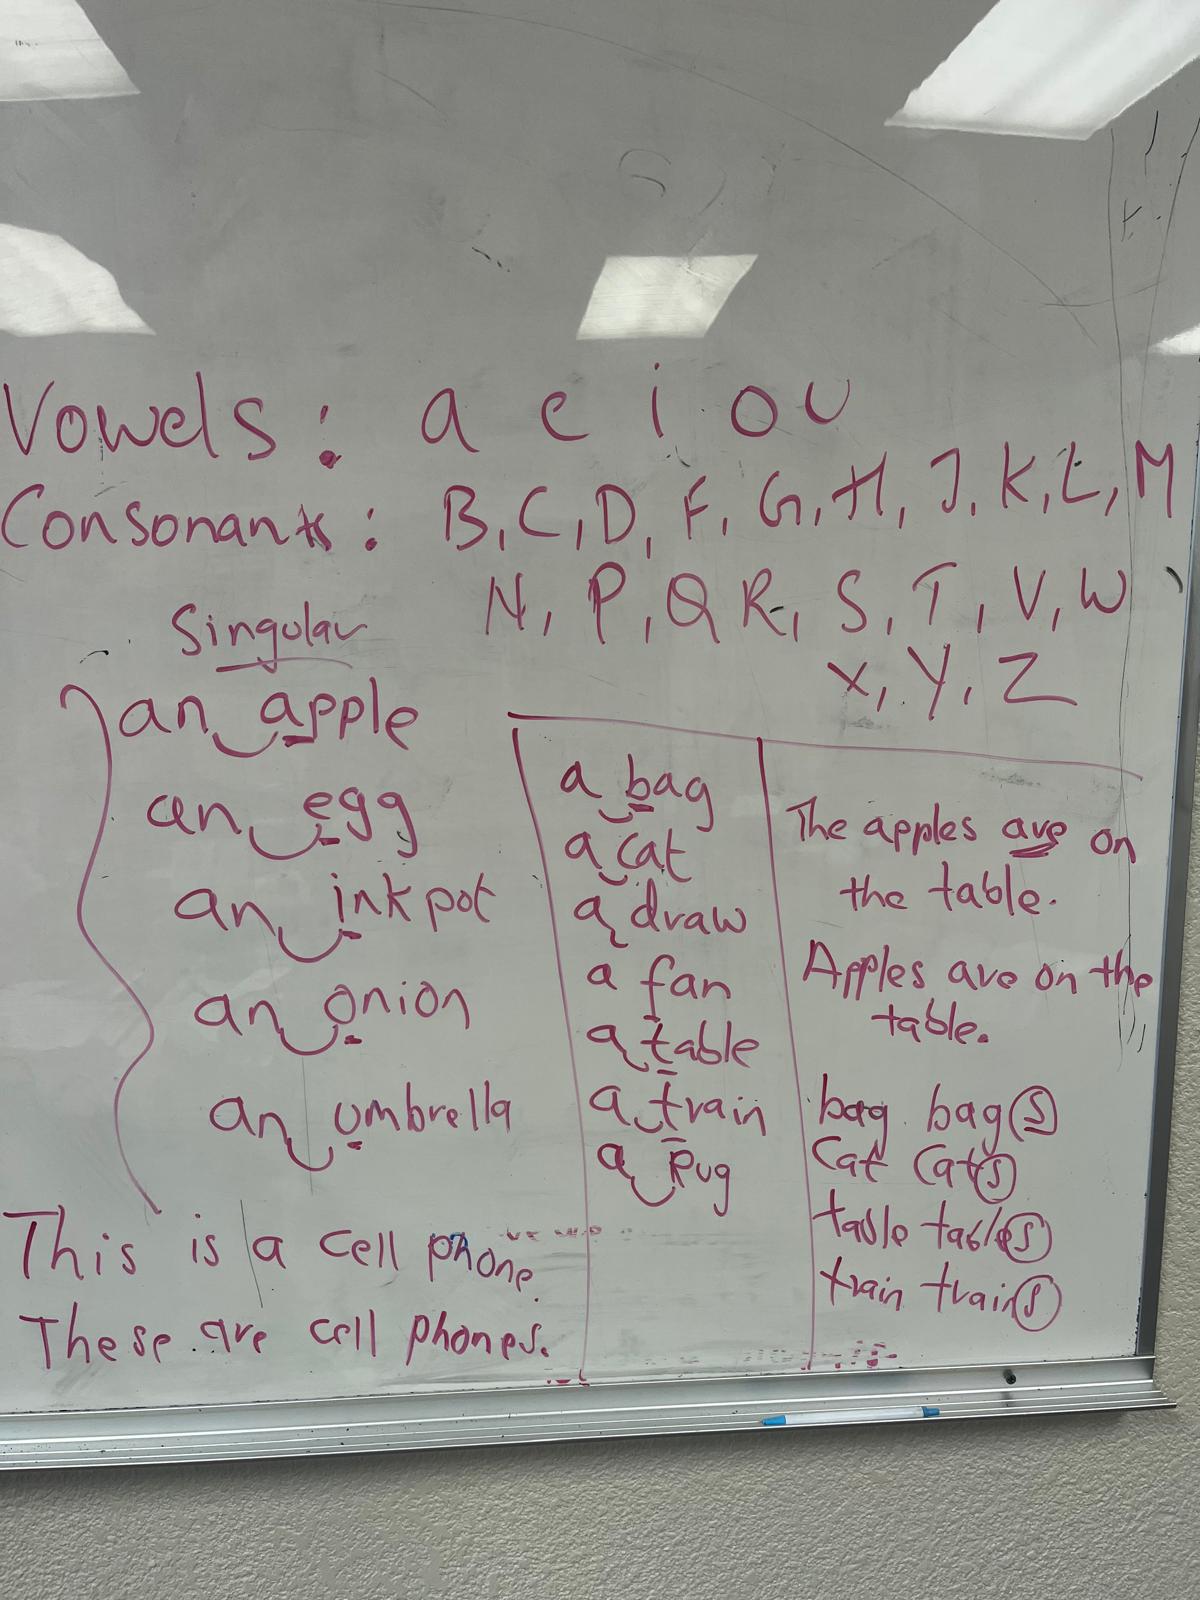 Vowels: a e i o u
Consonants: B, C, D, F, G, H, J, K, L, M
N, P, Q R, S, T, V, W
X, Y, Z
Singular
an apple
an egg
an inkpot
an onion
an umbrella
This is a cell phone.
These are cell phones.
a bag
a cat
a draw
a fan
a table
a train
a Rug
The apples are on
the table.
Apples are on the
table.
bag bags
Cat Cats
table tables
train trains